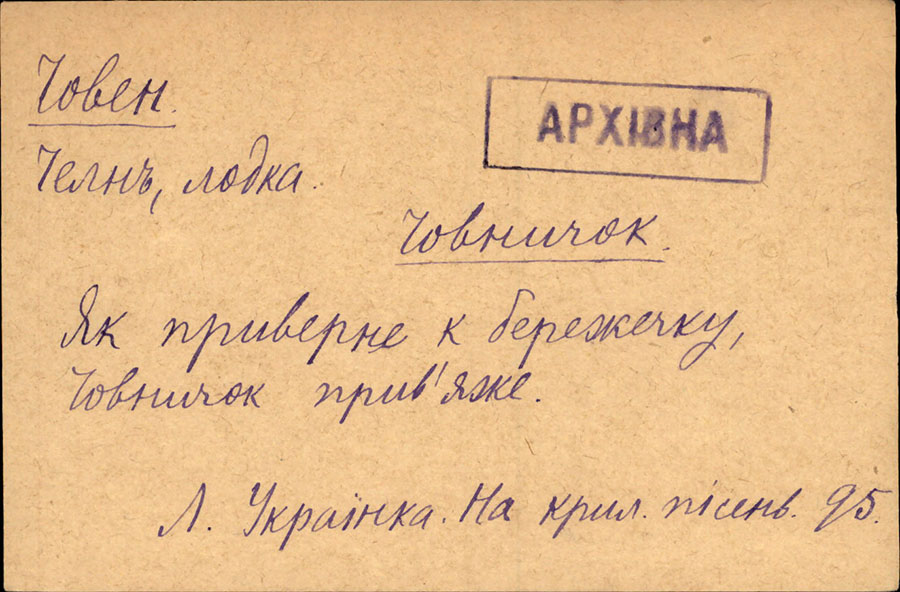 Човен.
АРХІВНА
Челнъ, лодка.
Човничок.
Як приверне к бережечку,
Човничок прив'яже.
Л. Українка. На крил. пісень. 95.